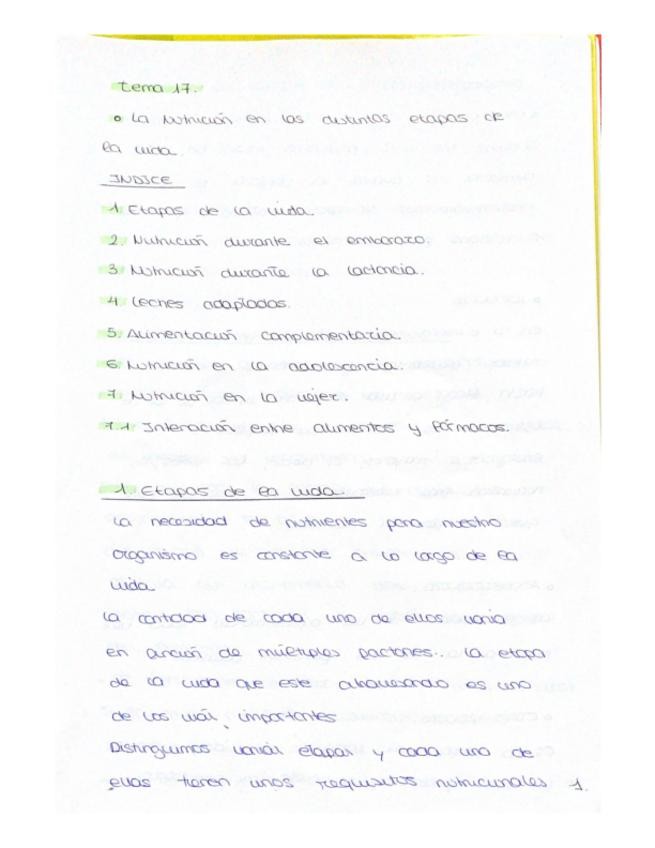 tema 17.
o La Nutrición en las distintas etapas de
la vida.
INDICE
1. Etapas de la vida.
2. Nutrición durante el embarazo.
3. Nutrición durante la lactancia.
4. Leches adaptadas.
5. Alimentación complementaria.
6. Nutrición en la adolescencia.
7. Nutrición en la vejez.
7.1. Interación entre alimentos y fármacos.
1. Etapas de la vida.
La necesidad de nutrientes para nuestro
organismo es constante a lo largo de la
vida.
La cantidad de cada uno de ellos varía
en función de múltiples factores.. La etapa
de la vida que este atravesando es uno
de los más importantes.
Distinguimos varias etapas y cada una de
ellas tienen unos requisitos nutricionales 1.